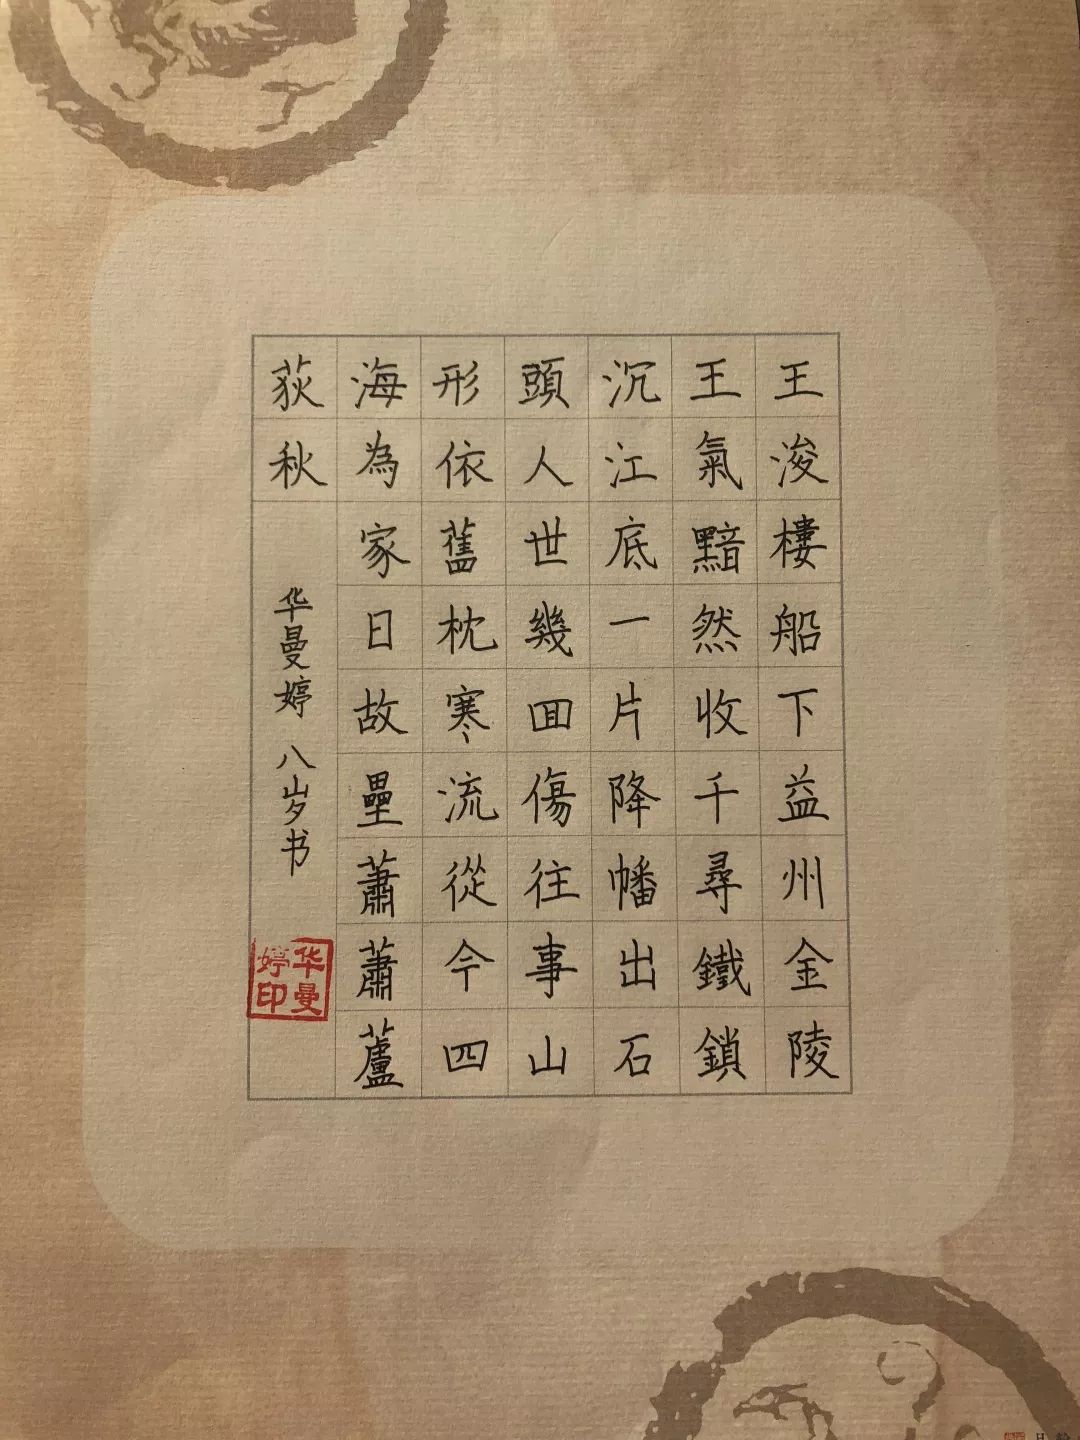 王浚樓船下益州金陵
王氣黯然收千尋鐵鎖
沉江底一片降幡出石
頭人世幾囬傷往事山
形依舊枕寒流從今四
海為家日故壘蕭蕭蘆
荻秋
华曼婷 八岁书
华曼婷印